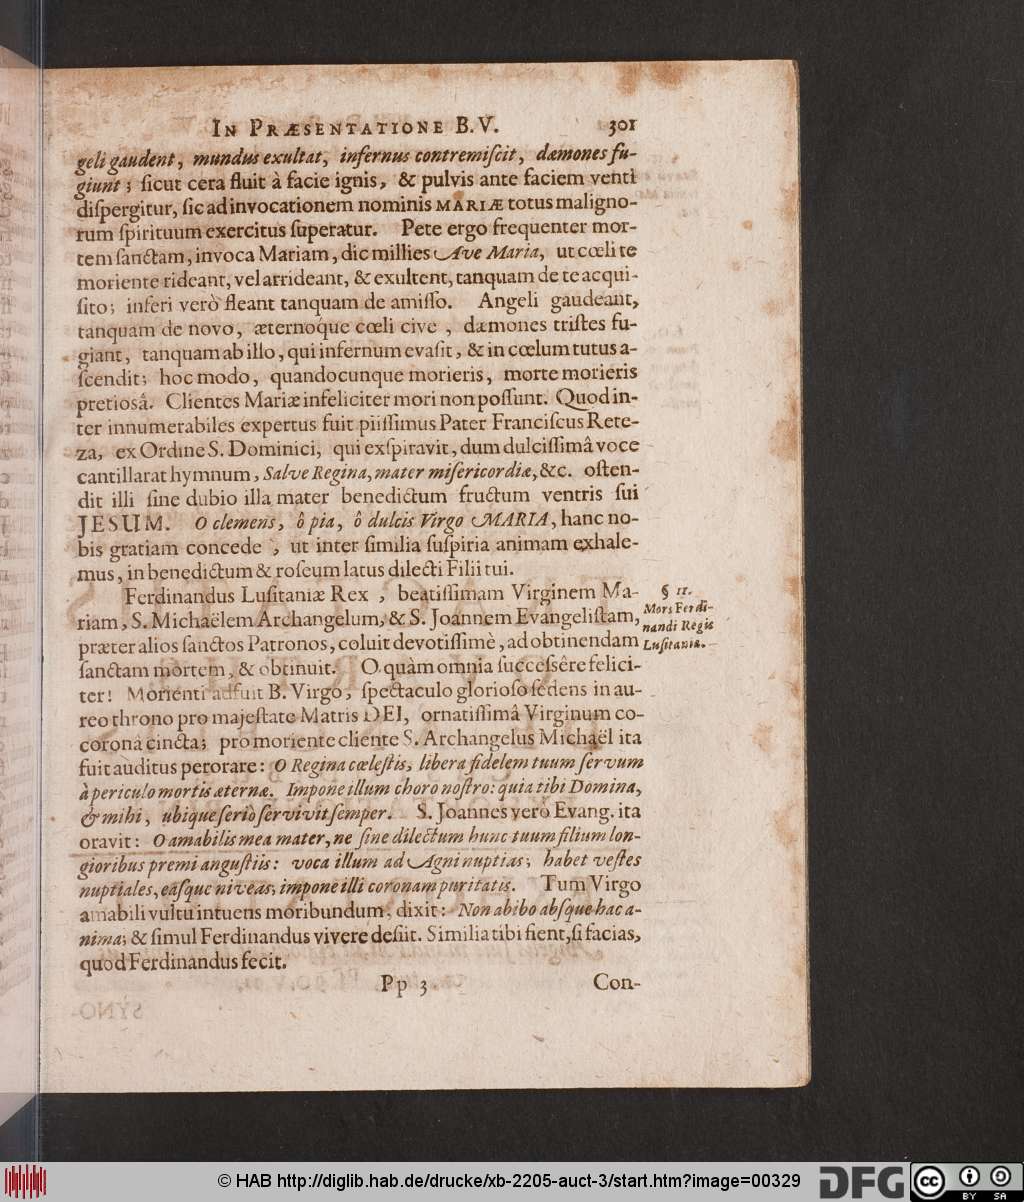 IN PRÆSENTATIONE B.V. 301
geli gaudent, mundus exultat, infernus contremiſcit, dæmones fu-
giunt; ſicut cera fluit à facie ignis, & pulvis ante faciem venti
diſpergitur, ſic ad invocationem nominis MARIÆ totus maligno-
rum ſpirituum exercitus ſuperatur. Pete ergo frequenter mor-
tem ſanctam, invoca Mariam, dic millies Ave Maria, ut cœli te
moriente rideant, vel arrideant, & exultent, tanquam de te acqui-
ſito; inferi verò fleant tanquam de amiſſo. Angeli gaudeant,
tanquam de novo, æternoque cœli cive, dæmones triſtes fu-
giant, tanquam ab illo, qui infernum evaſit, & in cœlum tutus a-
ſcendit; hoc modo, quandocunque morieris, morte morieris
pretiosâ. Clientes Mariæ infeliciter mori non poſſunt. Quod in-
ter innumerabiles expertus fuit piiſſimus Pater Franciſcus Rete-
za, ex Ordine S. Dominici, qui exſpiravit, dum dulciſſimâ voce
cantillarat hymnum, Salve Regina, mater miſericordiæ, &c. oſten-
dit illi ſine dubio illa mater benedictum fructum ventris ſui
JESUM. O clemens, ô pia, ô dulcis Virgo MARIA, hanc no-
bis gratiam concede, ut inter ſimilia ſuſpiria animam exhale-
mus, in benedictum & roſeum latus dilecti Filii tui.
Ferdinandus Luſitaniæ Rex, beatiſſimam Virginem Ma-
riam, S. Michaëlem Archangelum, & S. Joannem Evangeliſtam,
præter alios ſanctos Patronos, coluit devotiſſimè, ad obtinendam
ſanctam mortem, & obtinuit. O quàm omnia ſucceſsêre felici-
ter! Morienti adfuit B. Virgo, ſpectaculo glorioſo ſedens in au-
reo throno pro majeſtate Matris DEI, ornatiſſimâ Virginum co-
coronâ cincta; pro moriente cliente S. Archangelus Michaël ita
fuit auditus perorare: O Regina cœleſtis, libera fidelem tuum ſervum
à periculo mortis æternæ. Impone illum choro noſtro: quia tibi Domina,
& mihi, ubique ſeriò ſervivit ſemper. S. Joannes verò Evang. ita
oravit: O amabilis mea mater, ne ſine dilectum hunc tuum filium lon-
gioribus premi anguſtiis: voca illum ad Agni nuptias; habet veſtes
nuptiales, eaſque niveas; impone illi coronam puritatis. Tum Virgo
amabili vultu intuens moribundum, dixit: Non abibo abſque hac a-
nima; & ſimul Ferdinandus vivere deſiit. Similia tibi fient, ſi facias,
quod Ferdinandus fecit.
Pp 3 Con-
§ 11.
Mors Ferdi-
nandi Regis
Luſitaniæ.
© HAB http://diglib.hab.de/drucke/xb-2205-auct-3/start.htm?image=00329
DFG
cc BY SA